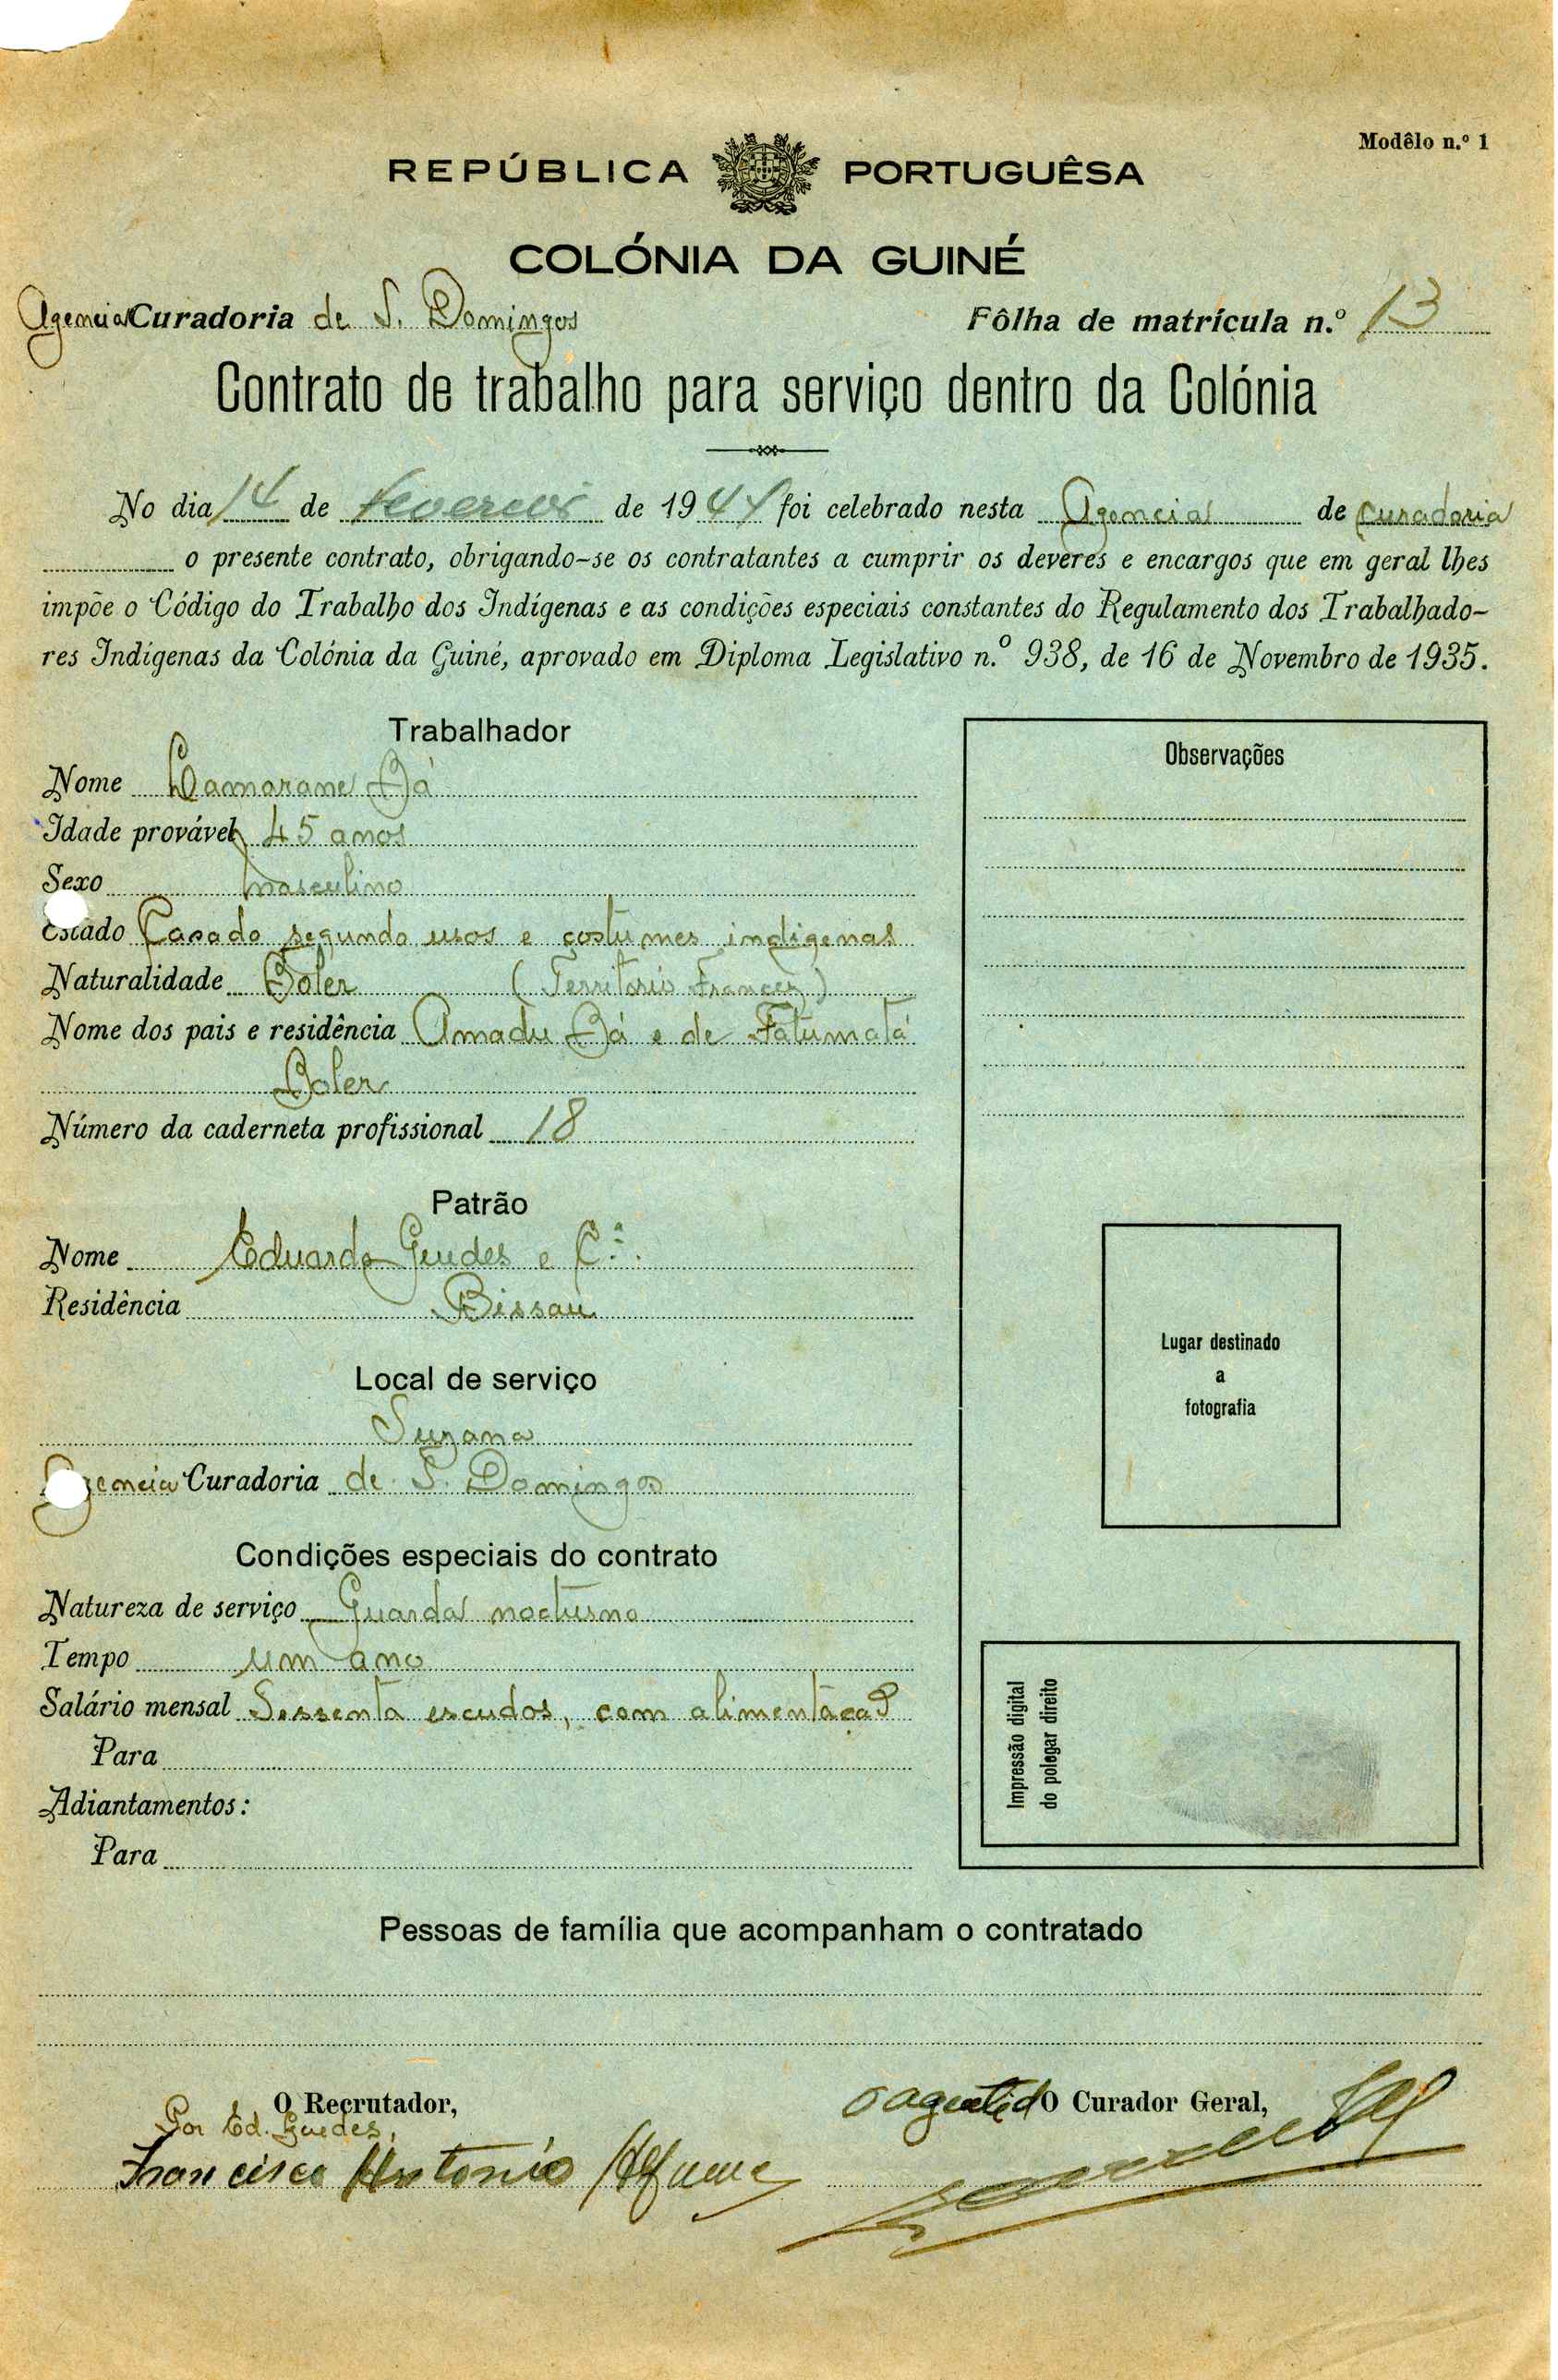 Modêlo n.º 1
REPÚBLICA PORTUGUÊSA
COLÓNIA DA GUINÉ
Agencia Curadoria de S. Domingos
Fôlha de matrícula n.º 13
Contrato de trabalho para serviço dentro da Colónia
No dia 14 de fevereiro de 1944 foi celebrado nesta Agencia de curadoria
o presente contrato, obrigando-se os contratantes a cumprir os deveres e encargos que em geral lhes
impõe o Código do Trabalho dos Indígenas e as condições especiais constantes do Regulamento dos Trabalhado-
res Indígenas da Colónia da Guiné, aprovado em Diploma Legislativo n.º 938, de 16 de Novembro de 1935.
Trabalhador
Nome Camarane Bá
Idade provável 45 anos
Sexo masculino
Estado Casado segundo usos e costumes indigenas
Naturalidade Boler (Territorio Francez)
Nome dos pais e residência Amadu Bá e de Fatumatá
Boler
Número da caderneta profissional 18
Patrão
Nome Eduardo Guedes e C.ª.
Residência Bissau
Local de serviço
Suzana
Agencia Curadoria de S. Domingos
Condições especiais do contrato
Natureza de serviço Guarda nocturno
Tempo um ano
Salário mensal Sessenta escudos, com alimentação
Para
Adiantamentos:
Para
Observações
Lugar destinado
a
fotografia
Impressão digital
do polegar direito
Pessoas de família que acompanham o contratado
O Recrutador,
Por Ed. Guedes,
Francisco Antonio
O agente do O Curador Geral,